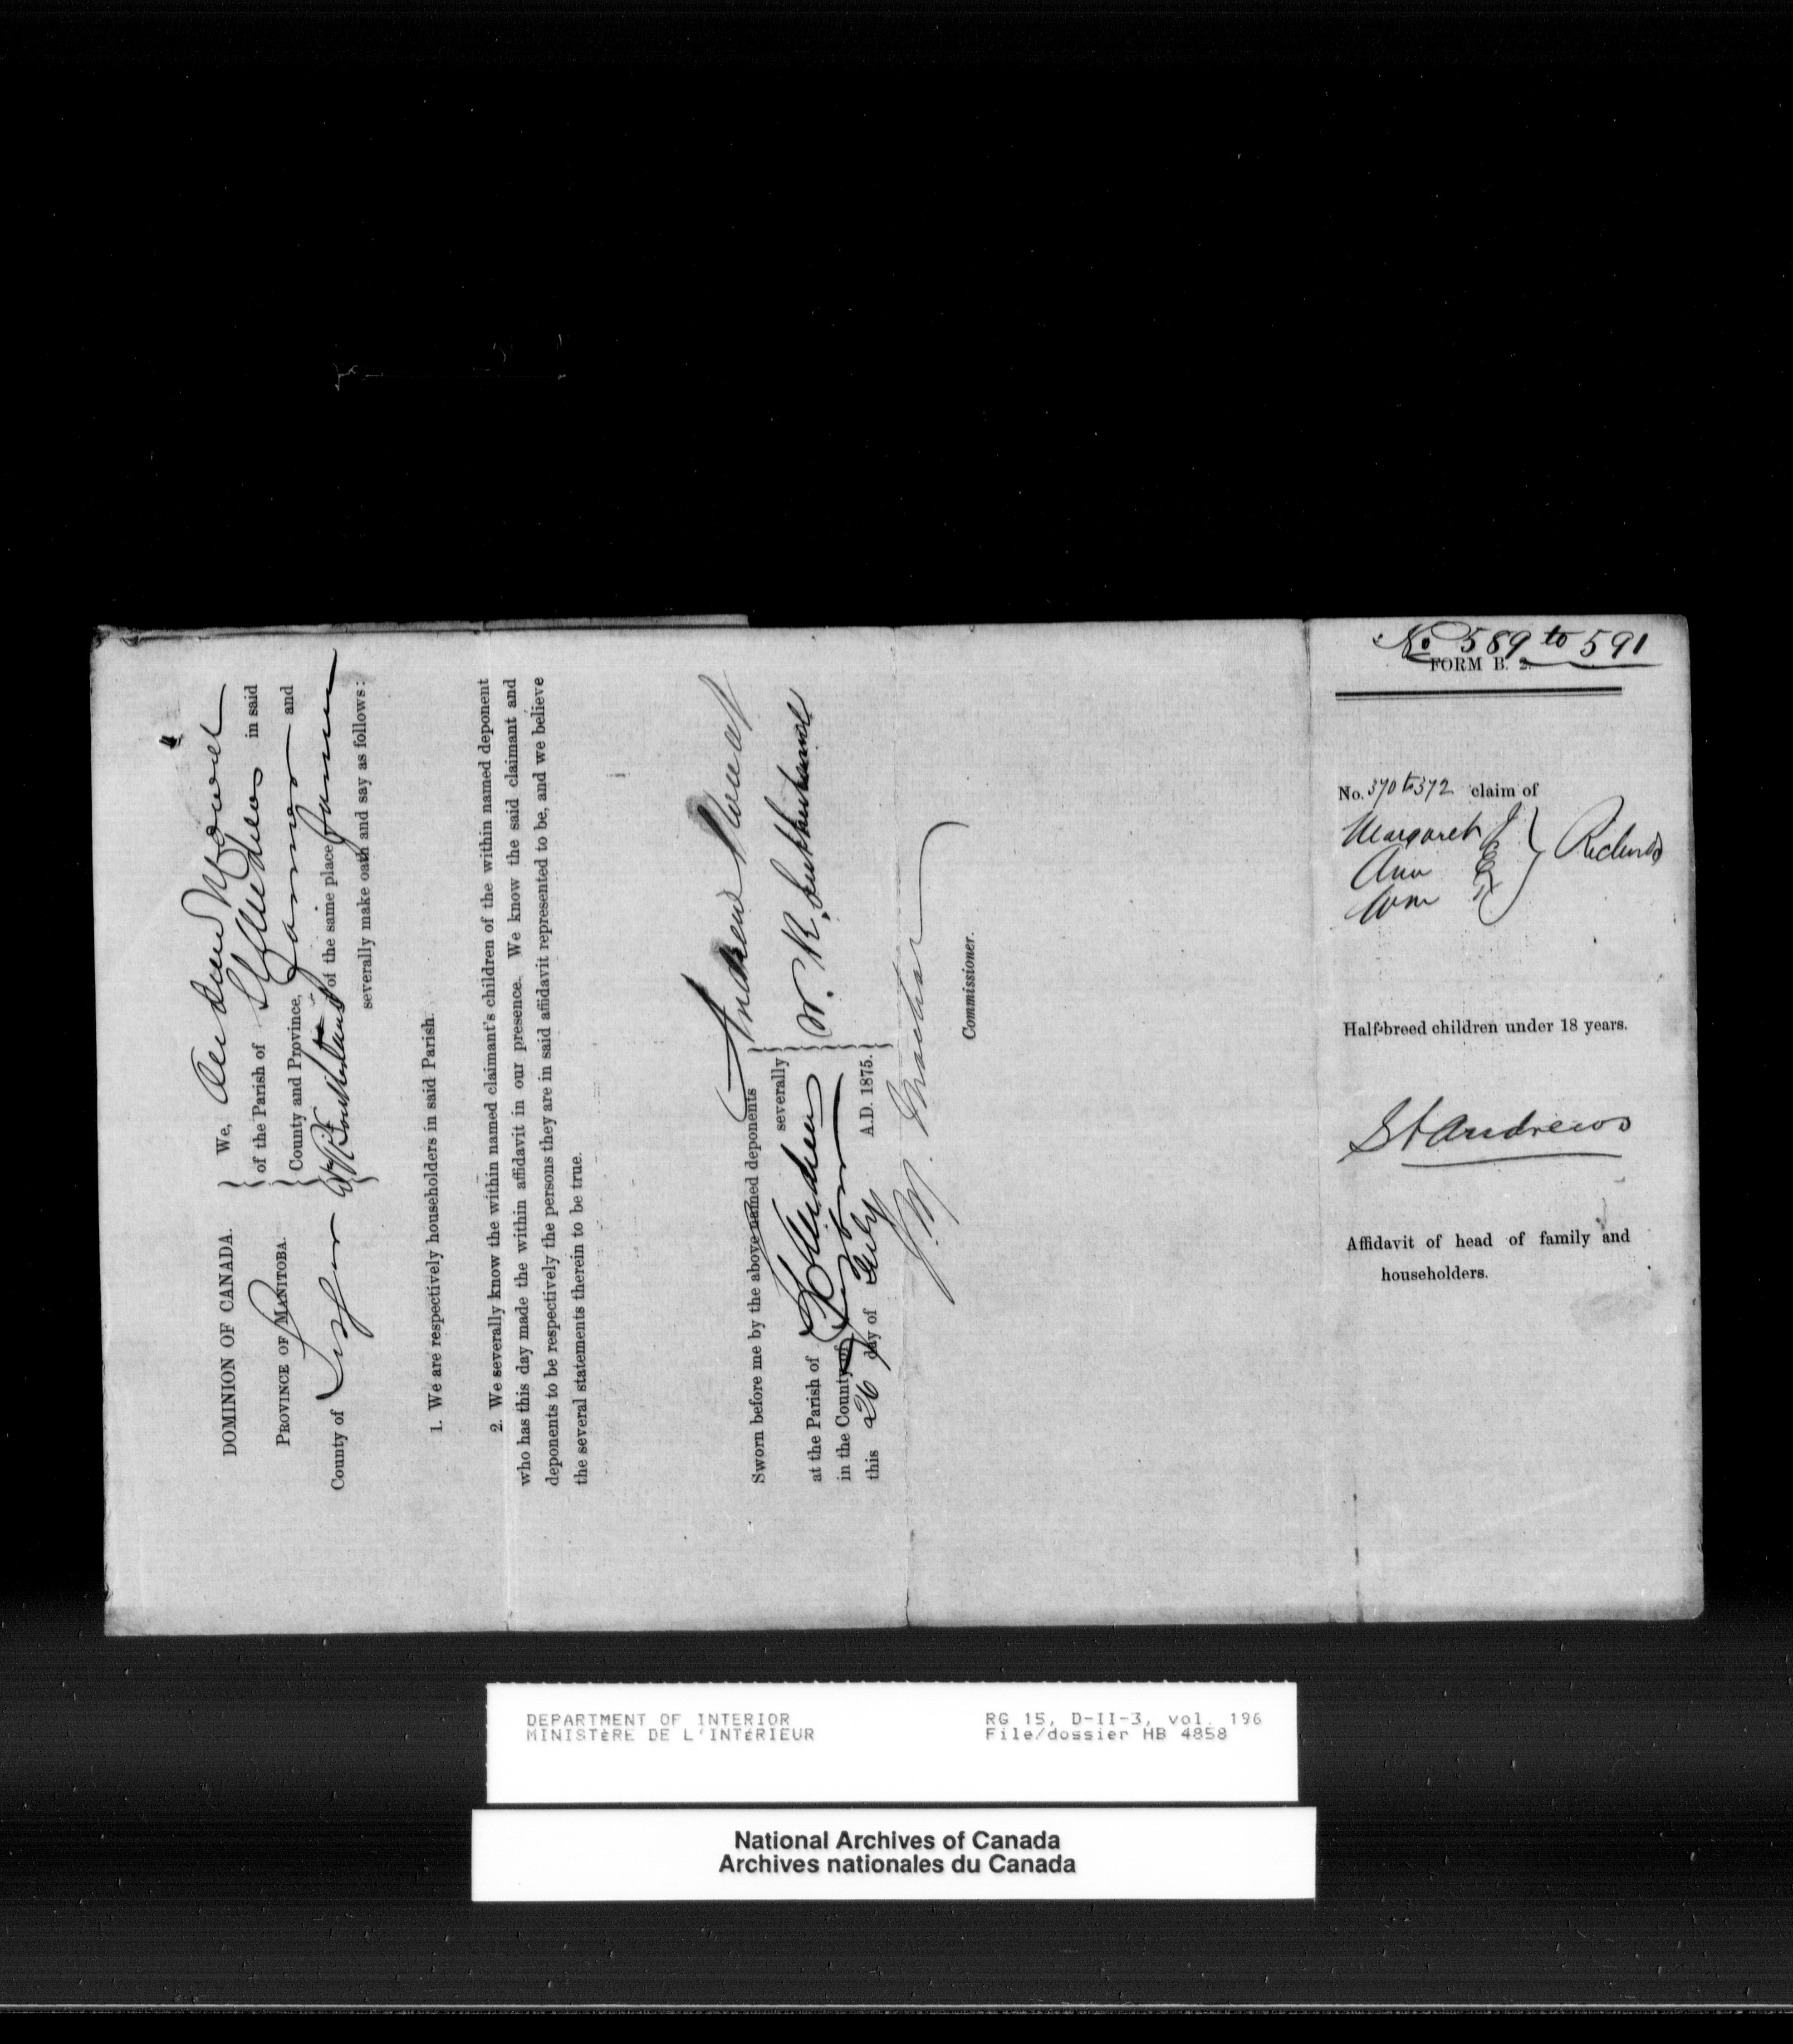 DOMINION OF CANADA.
PROVINCE OF MANITOBA.
County of Lisgar
We, Andrew Mowat
of the Parish of St Andrews in said
County and Province, Farmer and
of the same place, Farmer
severally make oath and say as follows:
1. We are respectively householders in said Parish.
2. We severally know the within named claimant's children of the within named deponent
who has this day made the within affidavit in our presence. We know the said claimant and
deponents to be respectively the persons they are in said affidavit represented to be, and we believe
the several statements therein to be true.
Sworn before me by the above named deponents
severally
at the Parish of St Andrews
in the County of Lisgar
this 26 day of July A.D. 1875.
Andrew Mowat
W. R.
J. M.
Commissioner.
No 589 to 591
FORM B. 2.
No. 370 to 372 claim of
Margaret J
Ann
Wm
Richards
Half-breed children under 18 years.
St Andrews
Affidavit of head of family and
householders.
DEPARTMENT OF INTERIOR
MINISTÈRE DE L'INTÉRIEUR
RG 15, D-II-3, vol. 196
File/dossier HB 4858
National Archives of Canada
Archives nationales du Canada